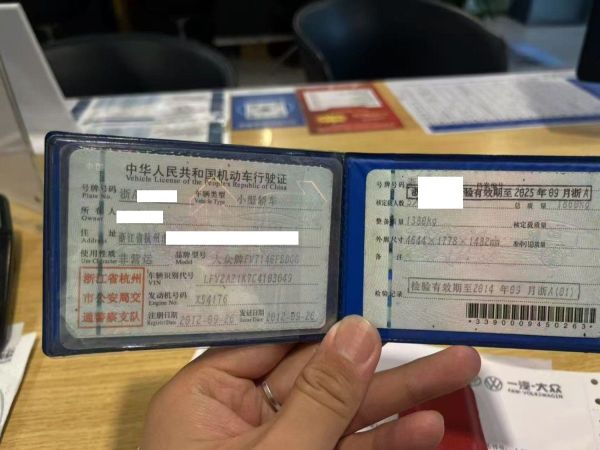 中华人民共和国机动车行驶证
Vehicle License of the People's Republic of China
号牌号码 浙A 车辆类型 小型轿车
Plate No. Vehicle Type
所有人
Owner
住址 浙江省杭州
Address
使用性质 非营运 品牌型号 大众牌
Use Character Model
浙江省杭州
市公安局交
通警察支队
车辆识别代号
VIN
发动机号码 X94176
Engine No.
注册日期 2012-09-26 发证日期 2012-09-26
Register Date Issue Date
号牌号码
检验有效期至2025年09月浙A
核定载人数 总质量
整备质量 1380kg 核定载质量
外廓尺寸 4644×1778×1482mm 准牵引总质量
备注
检验记录 检验有效期至2014年09月浙A(01)
*3390009450263*
一汽-大众
FAW-VOLKSWAGEN